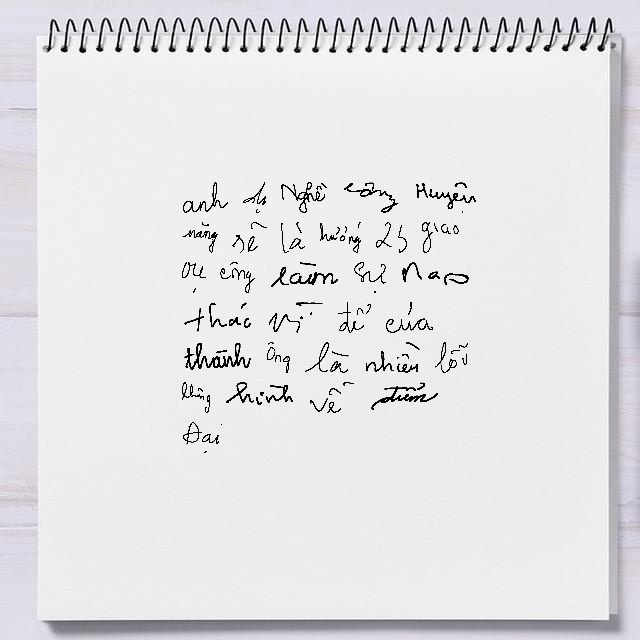 anh dụ Nghề công Huyện
năng sẽ là hướng 25 giao
vụ công làm Sự Nao
thác vị để của
thành Ông là nhiên lỗi
không hình về điểm
Đại